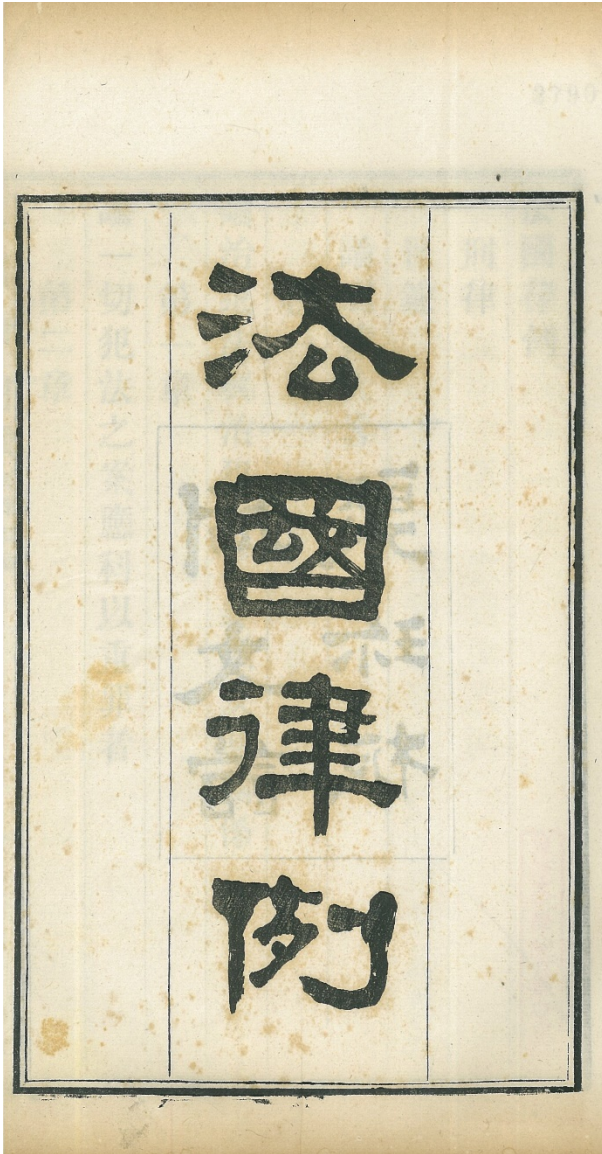 法國律例